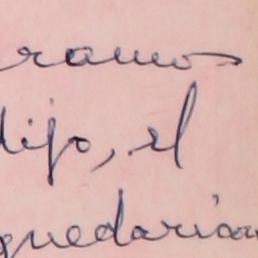 ramos
dijo, el
quedarian